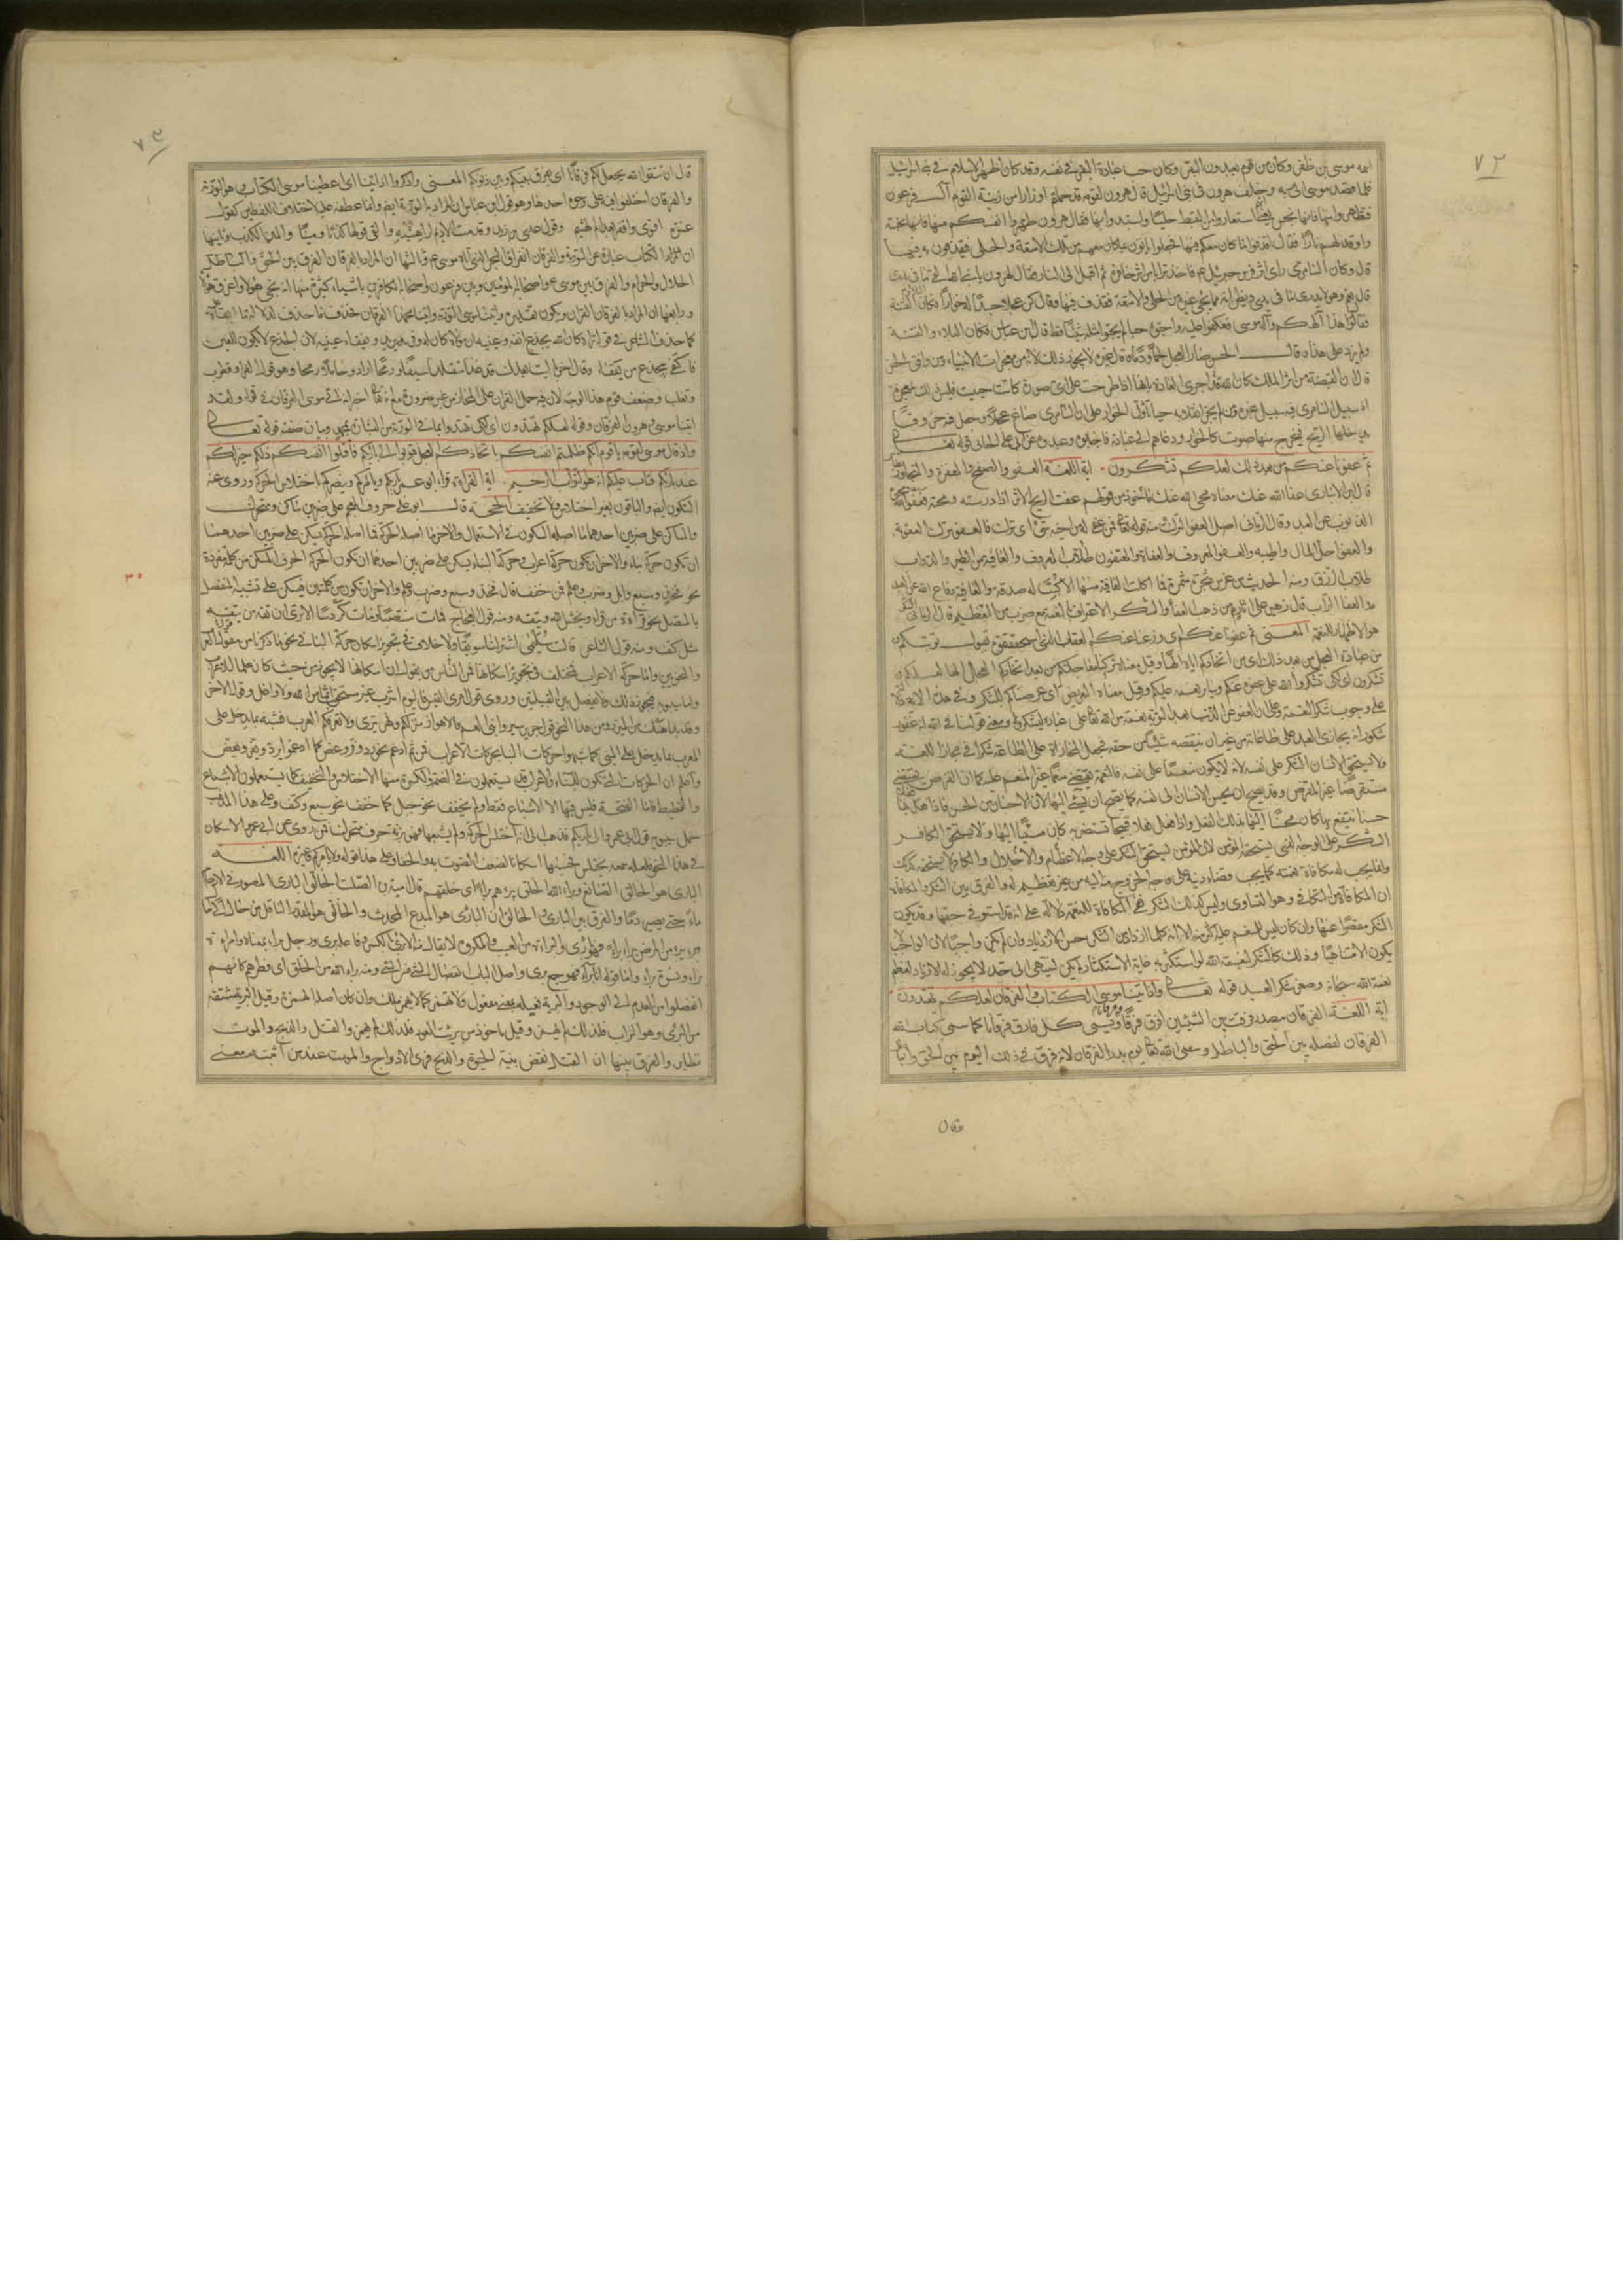 ٧٢
اسمه موسى بن ظفر وكان من قوم يعبدون البقر وكان حب عبادة البقر في نفسه وقد كان اظهر الاسلام في بنى اسرائيل
فلما قصد موسى الى ربه وخلف هرون في بنى اسرائيل قال هرون لقومه قد حملتم اوزارا من زينة القوم آل فرعون
فتطهروا منها فانها نجس يعنى انهم استعاروا من القبط حليا واستبدوا بها فقال هرون طهروا انفسكم منها فانها نجسة
واوقد لهم نارا فقال اقذفوا ما كان معكم فيها فجعلوا ياتون بما كان معهم من تلك الامتعة والحلى فيقذفون به فيها
قال وكان السامرى راى اثر فرس جبرئيل ع فاخذ ترابا من اثر حافره ثم اقبل الى النار فقال لهرون يا نبى الله القى ما فى يدى
قال نعم وهو لا يدرى ما في يده ويظن انه مما يجئ به غيره من الحلى والامتعة فقذف فيها وقال كن عجلا جسدا له خوار فكان البلاء والفتنة
فقالوا هذا الهكم واله موسى فعكفوا عليه واحبوه حبا لم يحبوا مثله شيئا قط قال ابن عباس فكان البلاء والفتنة
ولم يزد على هذا وقال الحسن صار العجل لحما ودما وقال غيره لا يجوز ذلك لانه من معجزات الانبياء ومن وافق الحسن
قال ان القبضة من اثر الملك كان الله قد اجرى العادة بانها اذا طرحت على اى صورة كانت حييت فليس ذلك بمعجزة
اذ سبيل السامرى فيه سبيل غيره ومن لم يجز انقلابه حيا تاول الخوار على ان السامرى صاغ عجلا وجعل فيه خروقا
يدخلها الريح فيخرج منها صوت كالخوار ودعاهم الى عبادته فاجابوه وعبدوه عن ابى على الجبائى قوله تعالى
ثم عفونا عنكم من بعد ذلك لعلكم تشكرون . اية اللغة العفو والصفح والمغفرة والتجاوز نظائر
قال ابن الانبارى عفا الله عنك معناه محى الله عنك ماخوذ من قولهم عفت الريح الاثر اذا درسته ومحته فعفو الله محوه
الذنوب عن العبد وقال الرمانى اصل العفو الترك ومنه قوله تعالى فمن عفى له من اخيه شئ اى ترك فالعفو ترك العقوبة
والعفو احل المال واطيبه والعفو المعروف والعفاة والمعتفون طلاب المعروف والعافية من الطير والدواب
طلاب الرزق ومنه الحديث من غرس شجرة مثمرة فما اكلت العافية منها الا كتب له صدقة والعافية دفاع الله عن العبد
والعفا التراب قال زهير على اثار من ذهب العفاء والشكر الاعتراف بالنعمة مع ضرب من التعظيم قال الرمانى الشكر
هو الاظهار للنعمة المعنى ثم عفونا عنكم اى وهبنا عنكم العقاب الذى استحققتموه بقبول توبتكم
من عبادة العجل من بعد ذلك اى من بعد اتخاذكم اياه الها وقيل معناه تركنا معاجلتكم من بعد اتخاذكم العجل الها لعلكم
تشكرون اى لكى تشكروا الله على عفوه عنكم وسائر نعمه عليكم وقيل معناه التعريض اى عرضناكم للشكر وفي هذه الاية دلالة
على وجوب شكر النعمة وعلى ان العفو عن الذنب بعد التوبة نعمة من الله تعالى على عباده ليشكروه ومعنى قولنا في الله انه غفور
شكور انه يجازى العبد على طاعاته من غير ان ينقصه شيئا من حقه فجعل المجازاة على الطاعة شكرا في مجاز اللغة
ولا يستحق الانسان الشكر على نفسه لانه لا يكون منعما على نفسه فالنعمة تقتضى منعما غير المنعم عليه كما ان القرض يقتضى
مستقرضا غير المقرض وقد يصح ان يحسن الانسان الى نفسه كما يصح ان يسئ اليها لان الاحسان من الحسن فاذا فعل بها فعلا
حسنا ينتفع به كان محسنا اليها بذلك الفعل واذا فعل بها قبيحا تستضر به كان مسيئا اليها ولا يستحق الكافر
الشكر على الوجه الذى يستحقه المؤمن لان المؤمن يستحق الشكر على وجه الاعظام والاجلال والكافر لا يستحقه كذلك
وانما يجب له مكافاة نعمته كما يجب قضاء دينه على وجه الخروج منه اليه من غير تعظيم له والفرق بين الشكر والمكافاة
ان المكافاة من التكافى وهو التساوى وليس كذلك الشكر ففى المكافاة للنعمة دلالة على انه قد استوفى حقها وقد يكون
الشكر مقصرا عنها وان كان ليس للمنعم عليه اكثر منه الا انه كلما ازداد من الشكر حسن له الازدياد وان لم يكن واجبا لان الواجب لا
يكون الا متناهيا وذلك كالشكر لنعمة الله لو استكثر به غاية الاستكثار لم يكن لينتهى الى حد لا يجوز له الازدياد لعظم
نعمة الله سبحانه وصغر شكر العبد قوله تعالى واذ اتينا موسى الكتاب والفرقان لعلكم تهتدون
اية اللغة الفرقان مصدر فرقت بين الشيئين افرق فرقا وفرقانا ويسمى كل فارق فرقانا كما سمى كتاب الله
الفرقان لفصله بين الحق والباطل وسمى الله تعالى يوم بدر الفرقان لانه فرق في ذلك اليوم بين الحق والباطل
وقال
٧٣
قال ان تتقوا الله يجعل لكم فرقانا اى يفرق بينكم وبين ذنوبكم المعنى واذكروا اذ اتينا اى اعطينا موسى الكتاب وهو التورية
والفرقان اختلفوا فيه على وجوه احدها وهو قول ابن عباس ان المراد به التورية ايضا وانما عطفه عليه لاختلاف اللفظين كقول
عنترة اقوى واقفر بعد ام الهيثم وقول عدى بن زيد وقدمت الاديم لراهشيه والفى قولها كذبا ومينا والمين الكذب وثانيها
ان المراد بالكتاب عبارة عن التورية والفرقان انفراق البحر الذى اتاه موسى ع وثالثها ان المراد بالفرقان الفرق بين
الحلال والحرام والفرق بين موسى ع واصحابه المؤمنين وبين فرعون واصحابه الكافرين باشياء كثيرة منها انه نجى هؤلاء واغرق هؤلاء
ورابعها ان المراد بالفرقان القران ويكون تقديره واتينا موسى التورية واتينا محمدا الفرقان فحذف ما حذف لدلالة ما ابقاه
كما حذف الشاعر في قوله تراه كان الله يجدع انفه وعينيه ان مولاه كان له وفر يريد ويفقاء عينيه لان الجدع لا يكون للعين
فاكتفى بيجدع من يفقاء وقال اخر متقلدا سيفا ورمحا اراد وحاملا رمحا وهو قول الفراء وقطرب
وثعلب وضعف قوم هذا الوجه لان فيه حمل القران على المجاز من غير ضرورة مع انه تعالى اخبر انه اتى موسى الفرقان في قوله ولقد
اتينا موسى وهرون الفرقان وقوله لعلكم تهتدون اى لكى تهتدوا بما في التورية من البشارة بمحمد وبيان صفته قوله تعالى
واذ قال موسى لقومه يا قوم انكم ظلمتم انفسكم باتخاذكم العجل فتوبوا الى بارئكم فاقتلوا انفسكم ذلكم خير لكم
عند بارئكم فتاب عليكم انه هو التواب الرحيم . اية القراءة قرا ابو عمرو بارئكم ويامركم وينصركم باختلاس الحركة وروى عنه
السكون ايضا والباقون بغير اختلاس ولا تخفيف الحجة قال ابو على حروف المعجم على ضربين ساكن ومتحرك
والساكن على ضربين احدهما ما اصله السكون في الاستعمال والاخر ما اصله الحركة فما اصله الحركة يسكن على ضربين احدهما
ان تكون حركة بناء والاخر ان تكون حركة اعراب وحركة البناء يسكن على ضربين احدهما ان تكون الحركة الحرف المسكن من كلمة مفردة
نحو فخذ وسبع وابل وضرب وعلم فمن خفف قال فخذ وسبع وضرب وعلم والاخر ان تكون من كلمتين فيسكن على تشبيه المنفصل
بالمتصل نحو قراءة من قراء ويخش الله ويتقه ومنه قول العجاج فبات منتصبا وما تكردسا الا ترى ان تقه من يتقه
مثل كتف ومنه قول الشاعر قالت سليمى اشتر لنا سويقا ولا خلاف في تجويز اسكان حركة البناء في نحو ما ذكرنا من قول العرب
والنحويين واما حركة الاعراب فمختلف في تجويز اسكانها فمن الناس من يقول ان اسكانها لا يجوز من حيث كان علما للاعراب
واما سيبويه فيجوز ذلك ولا يفصل بين القبيلين وروى قول امرئ القيس فاليوم اشرب غير مستحقب اثما من الله ولا واغل وقول الاخر
وقد بدا هنك من المئزر ومن هذا النحو قول جرير سيروا بنى العم فالاهواز منزلكم ونهر تيرى ولا تعرفكم العرب فشبه ما يدخل على
المعرب بما يدخل على المبنى كما شبهوا حركات البناء بحركات الاعراب فمن ثم ادغم نحو رد وفر وعض كما ادغموا يرد ويفر ويعض
واعلم ان الحركات التى تكون للبناء والاعراب قد يستعملون في الضمة والكسرة منها الاختلاس والتخفيف كما يستعملون الاشباع
والتمطيط فاما الفتحة فليس فيها الا الاشباع فقط ولم يخفف نحو جمل كما خفف نحو سبع وكتف وعلى هذا المذهب
حمل سيبويه قول ابى عمرو الى بارئكم فذهب الى انه اختلس الحركة ولم يشبعها فهى بزنة حرف متحرك فمن روى عن ابى عمرو الاسكان
في هذا النحو فلعله سمعه يختلس فحسبها اسكانا لضعف الصوت به والخفاء وعلى هذا قوله ولا يامركم وغيره اللغة
البارئ هو الخالق الصانع وبراء الله الخلق يبرؤهم براء اى خلقهم قال امية بن الصلت الخالق البارئ المصور في الارحام
ماء حتى يصير دما والفرق بين البارئ والخالق ان البارئ هو المبدع المحدث والخالق هو المقدر الناقل من حال الى حال
وبرئ من المرض براء فهو بارئ والبراءة من العيب والمكروه لا يقال منه الا برئ بالكسر وفاعله برئ ورجل براء بمعناه وامراة
براء ونسوة براء واما قوله انا برآء فهو جمع برئ واصل الباب انفصال الشئ من الشئ ومنه براء الله من الخلق اى فطرهم كانهم
انفصلوا من العدم الى الوجود والبرية فعيلة بمعنى مفعول ولا تهمز كما لا يهمز ملك وان كان اصله الهمزة وقيل البرية مشتقة
من البرى وهو التراب فلذلك لم يهمز وقيل ماخوذ من بريت العود فلذلك لم يهمز والقتل والذبح والموت
نظائر والفرق بينها ان القتل نقض بنية الحيوة والذبح فرى الاوداج والموت عند من اثبته معنى
٣٠